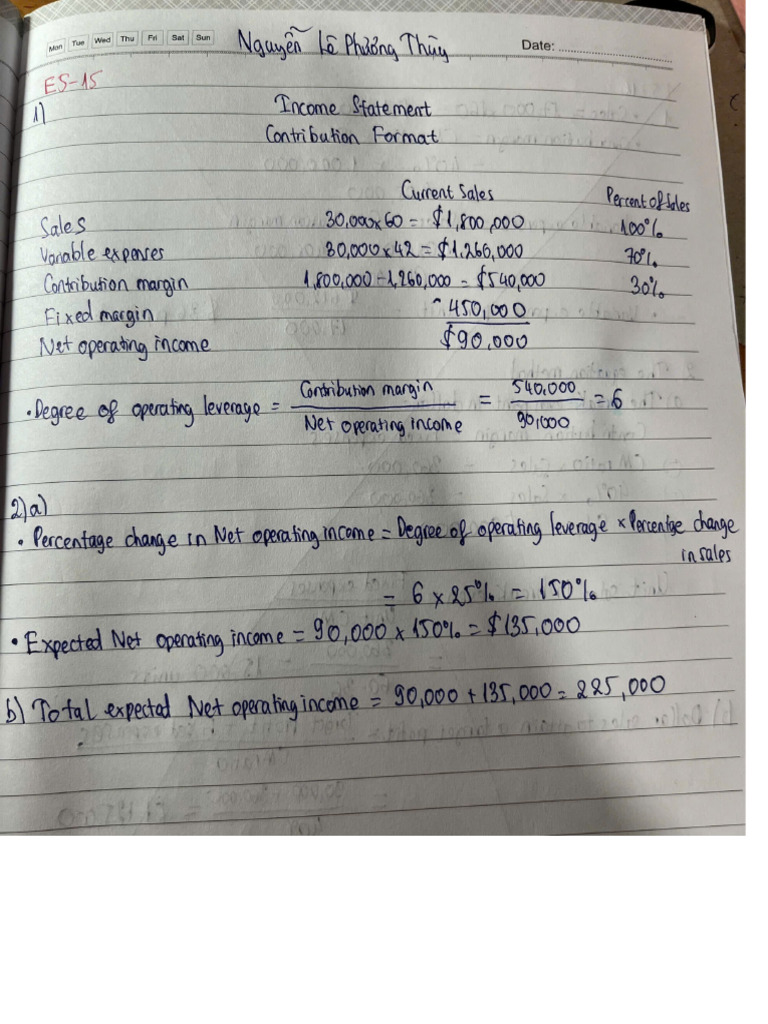 Mon Tue Wed Thu Fri Sat Sun
Nguyễn Lê Phương Thùy
Date:
E5-15
1)
Income Statement
Contribution Format
Current Sales Percent of Sales
Sales 30,000x60 = $1,800,000 100%
Variable expenses 30,000x42 = $1,260,000 70%
Contribution margin 1,800,000-1,260,000 = $540,000 30%
Fixed margin - 450,000
Net operating income $90,000
• Degree of operating leverage = Contribution margin / Net operating income = 540,000 / 90,000 = 6
2)a)
• Percentage change in Net operating income = Degree of operating leverage x Percentge change
in sales
= 6 x 25% = 150%
• Expected Net operating income = 90,000 x 150% = $135,000
b) Total expected Net operating income = 90,000 + 135,000 = 225,000